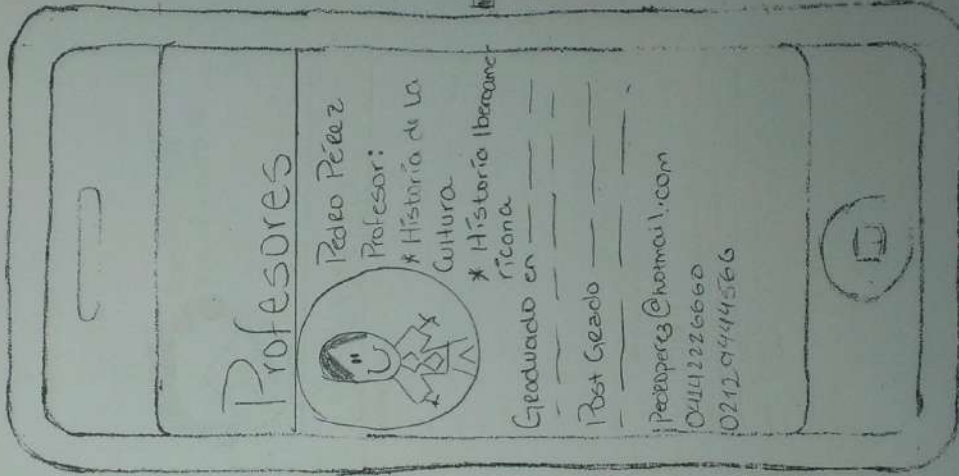 Profesores
Pedro Pérez
Profesor:
* Historia de La
Cultura
* Historia Iberoame
ricana
Graduado en
Post Grado
Pedroperez@hotmail.com
04142226660
02129444566